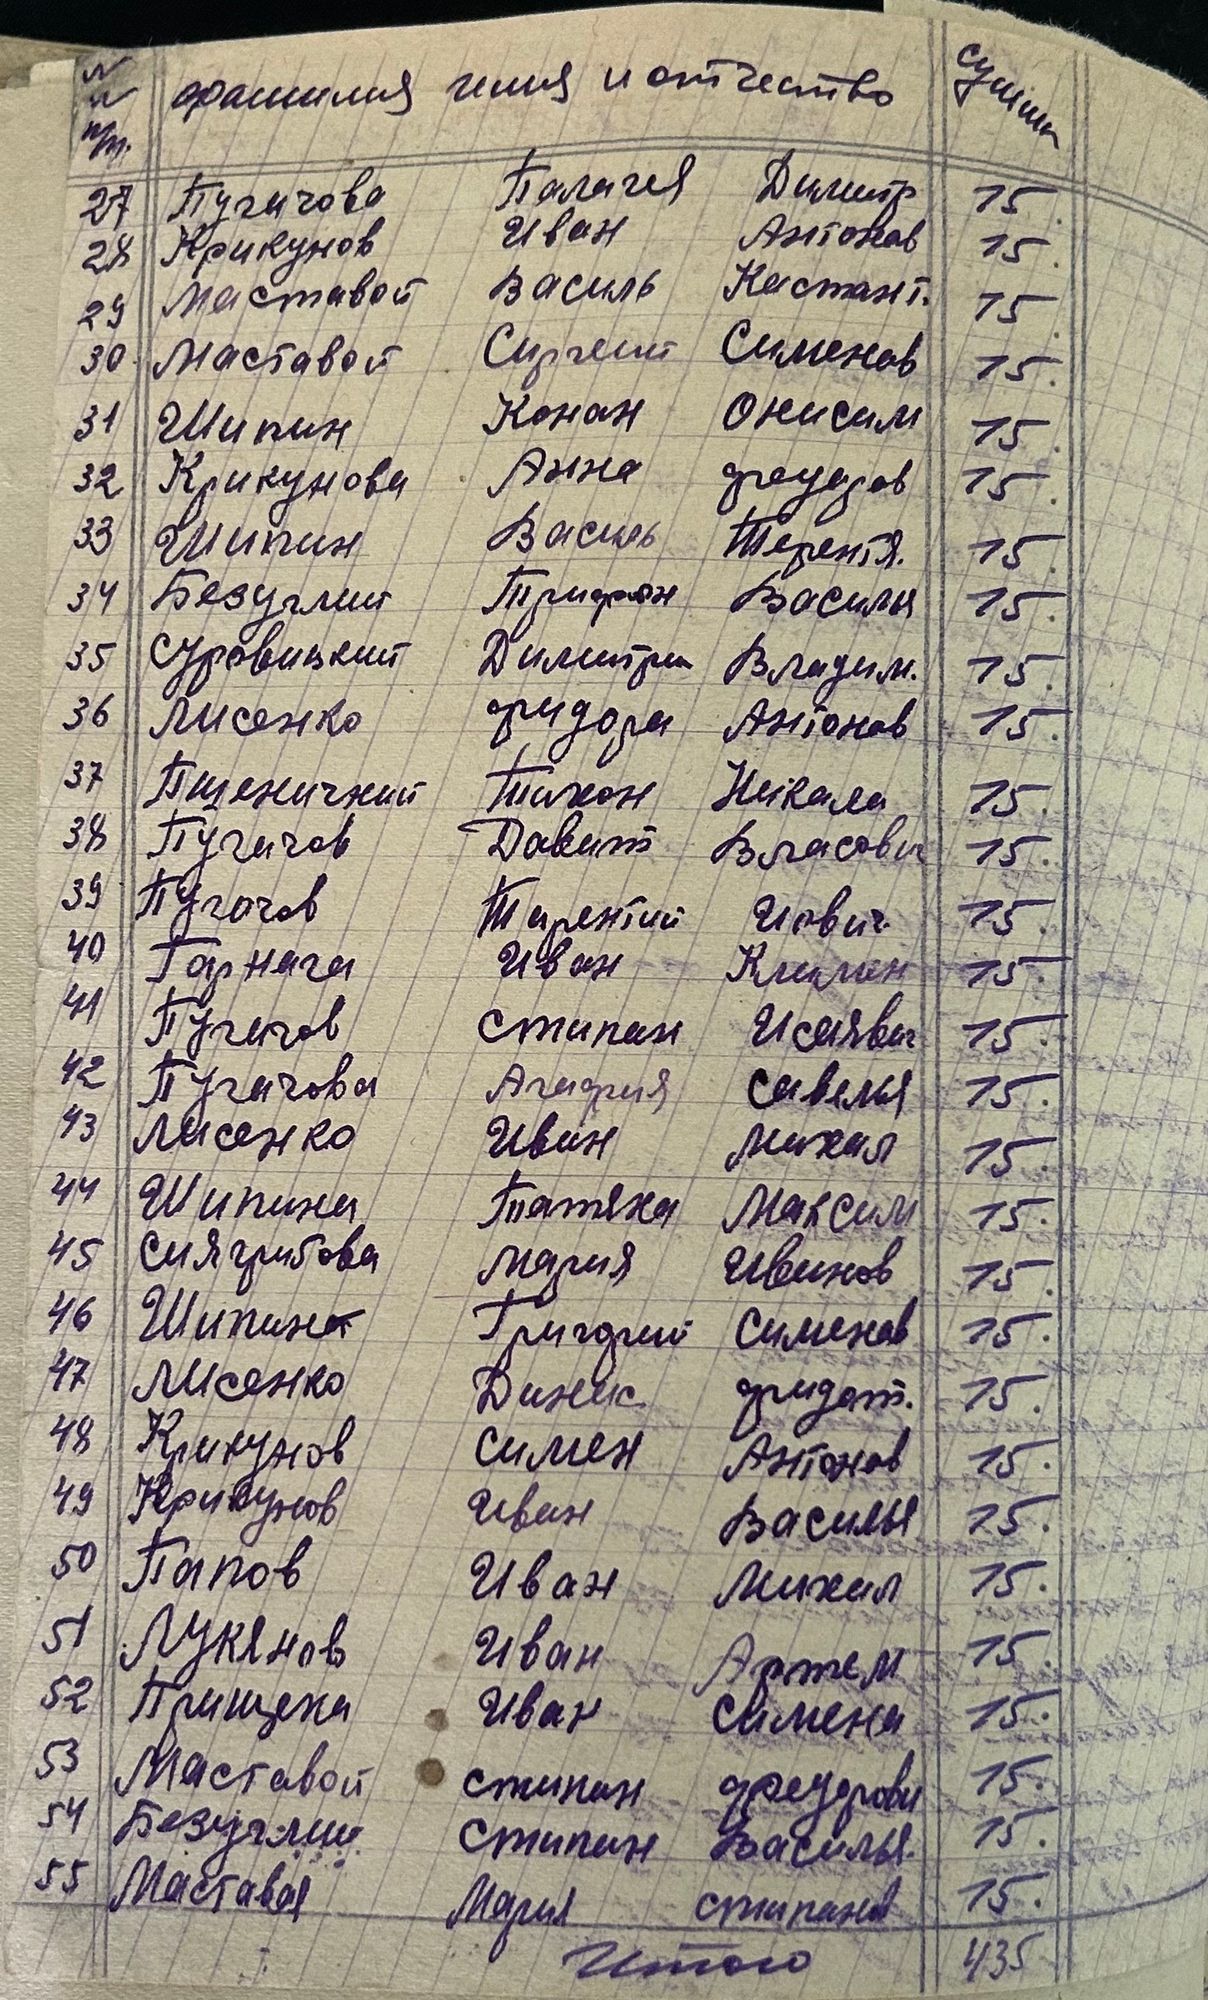 № п/п. фамилия имя и отчество сумма
27 Пугачова Палагея Димитр 15.
28 Крикунов Иван Антонов 15.
29 Маставой Василь Кастант. 15.
30 Маставой Сиргеий Сименов 15.
31 Шипин Конан Онисим 15.
32 Крикунова Анна феударов 15.
33 Шипин Василь Терентя. 15.
34 Безуглий Трифон Василья 15.
35 Суровицкий Димитри Владим. 15.
36 Лисенко фидора Антонов 15.
37 Пшеничний Тихон Никала 15.
38 Пугачов Давит Власович 15.
39 Пугочов Тарентий Иович 15.
40 Гарнага Иван Климен 15.
41 Пугачов Стипан Исаявич 15.
42 Пугачова Агафия Савелья 15.
43 Лисенко Иван Михал 15.
44 Шипина Татяна Максим 15.
45 Сиягрибова Мария Иванов 15.
46 Шипин Григорий Сименов 15.
47 Лисенко Динис фидот. 15.
48 Крикунов Симен Антонов 15.
49 Крикунов Иван Василья 15.
50 Папов Иван Михал 15.
51 Лукянов Иван Артем 15.
52 Прищепа Иван Симена 15.
53 Маставой Стипан феударови 15.
54 Безуглий Стипан Василья. 15.
55 Маставая Мария Стипанов 15.
Итого 435